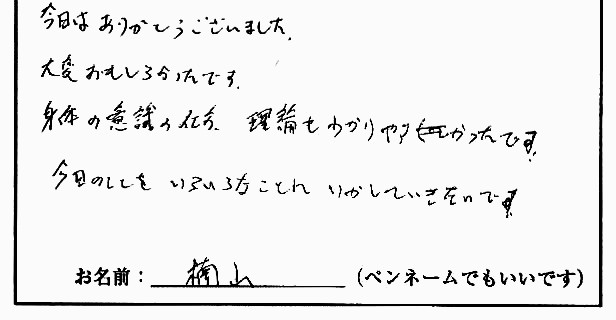 今日はありがとうございました。
大変おもしろかったです。
身体の意識の仕方、理論もわかりやすかったです。
今日のことをいろいろなことにいかしていきたいです。
お名前：楠山（ペンネームでもいいです）